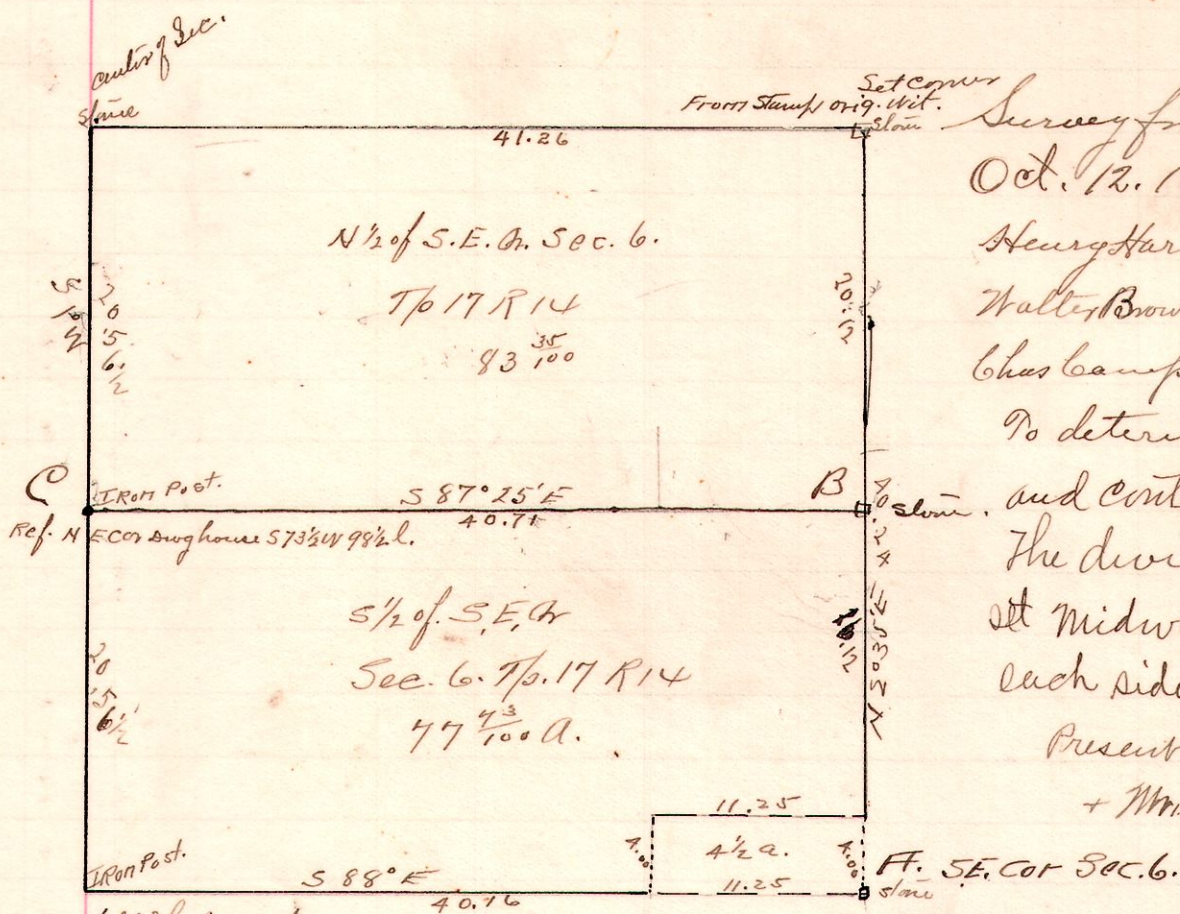 center of Sec.
Stone
Set corner
From Stump orig. Wit.
Stone
41.26
N ½ of S.E. Qr. Sec. 6.
Tp 17 R 14
83 35/100
20.56½
C
Iron Post.
S 87° 25' E
40.71
B
Stone.
Ref. N E Cor Dwghouse S 73½ W 98½ l.
N 2° 35' E 42.04
S ½ of S.E. Qr
Sec. 6. Tp. 17 R 14
77 43/100 A.
20.56½
11.25
4.00
4½ a.
4.00
11.25
Iron Post.
S 88° E
40.16
A. S.E. Cor Sec. 6.
Stone
Survey
Oct. 12.
Henry Har
Walter Brow
Chas Camp
To deter
and cont
The divi
set Midw
each side
Present
+